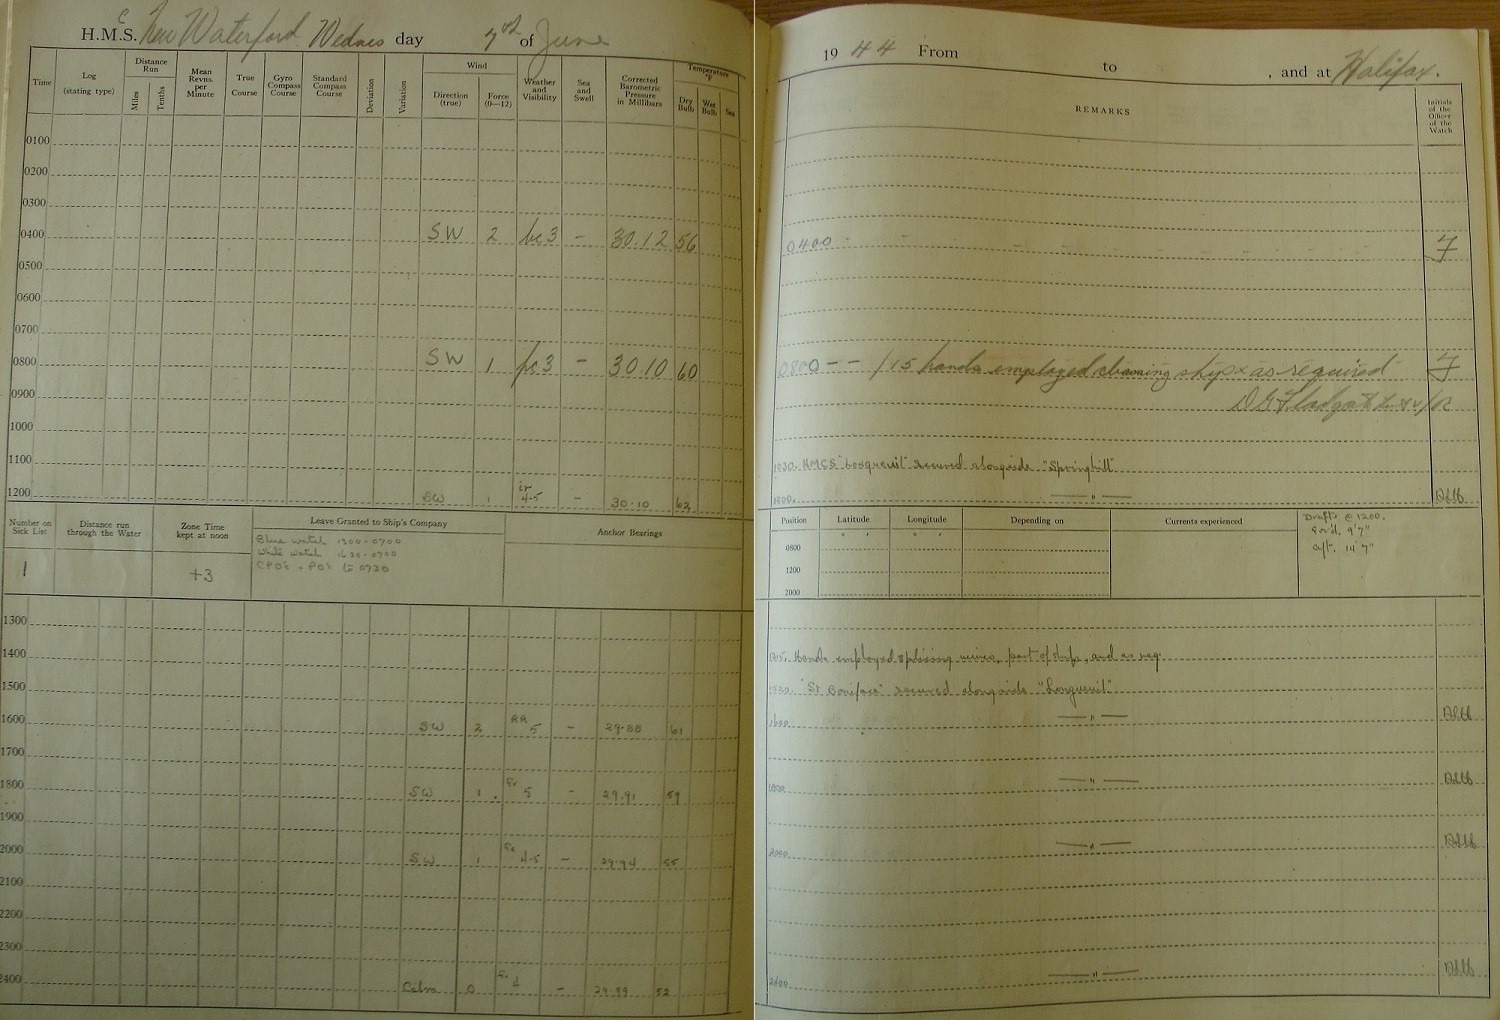 H.M.C.S. New Waterford Wednesday 7th of June
Time
Log
(stating type)
Distance
Run
Miles
Tenths
Mean
Revns.
per
Minute
True
Course
Gyro
Compass
Course
Standard
Compass
Course
Deviation
Variation
Wind
Direction
(true)
Force
(0—12)
Weather
and
Visibility
Sea
and
Swell
Corrected
Barometric
Pressure
in Millibars
Temperature
°F
Dry
Bulb
Wet
Bulb
Sea
0100
0200
0300
0400 SW 2 bc 3 - 30.12 56
0500
0600
0700
0800 SW 1 bc 3 - 30.10 60
0900
1000
1100
1200 SW 1 4-5 - 30.10 62
Number on
Sick List
1
Distance run
through the Water
Zone Time
kept at noon
+3
Leave Granted to Ship's Company
Blue watch 1300-0700
White watch 1630-0700
CPO's + PO's to 0730
Anchor Bearings
1300
1400
1500
1600 SW 2 5 - 29.88 61
1700
1800 SW 1 5 - 29.91 59
1900
2000 SW 1 4-5 - 29.94 55
2100
2200
2300
2400 Calm 0 4 - 29.99 52
1944 From to , and at Halifax.
REMARKS
Initials
of the
Officer
of the
Watch
0400 - -
0800 - - /15 hands employed cleaning ship & as required
1030. HMCS "Longueuil" secured alongside "Springhill"
1200 — " —
Position
Latitude
Longitude
Depending on
Currents experienced
0800
1200
2000
Drafts @ 1200.
For'd. 9'7"
aft. 14'7"
1315. Hands employed splicing wires, part of ship, and as req.
1530. "St Boniface" secured alongside "Longueuil"
1600 — " —
1800 — " —
2000 — " —
2400 — " —